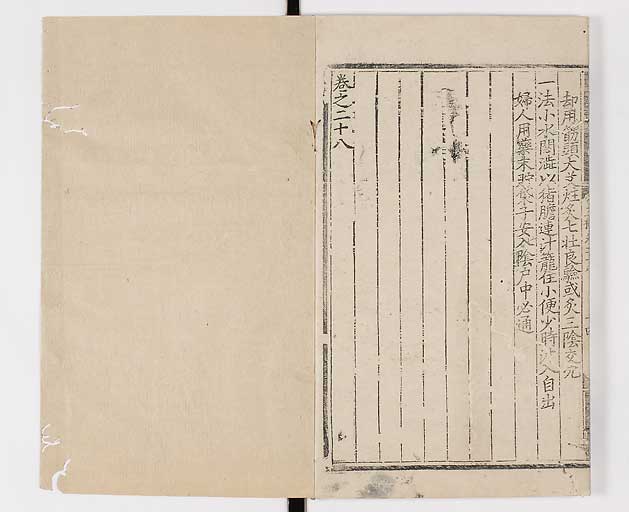 却用筋頭大艾炷灸七壯良驗或灸三陰交穴
一法小水閉澁以猪膽連汁籠住小便少時汁入自出
婦人用藥末貯袋子安入陰戶中必通
卷之二十八